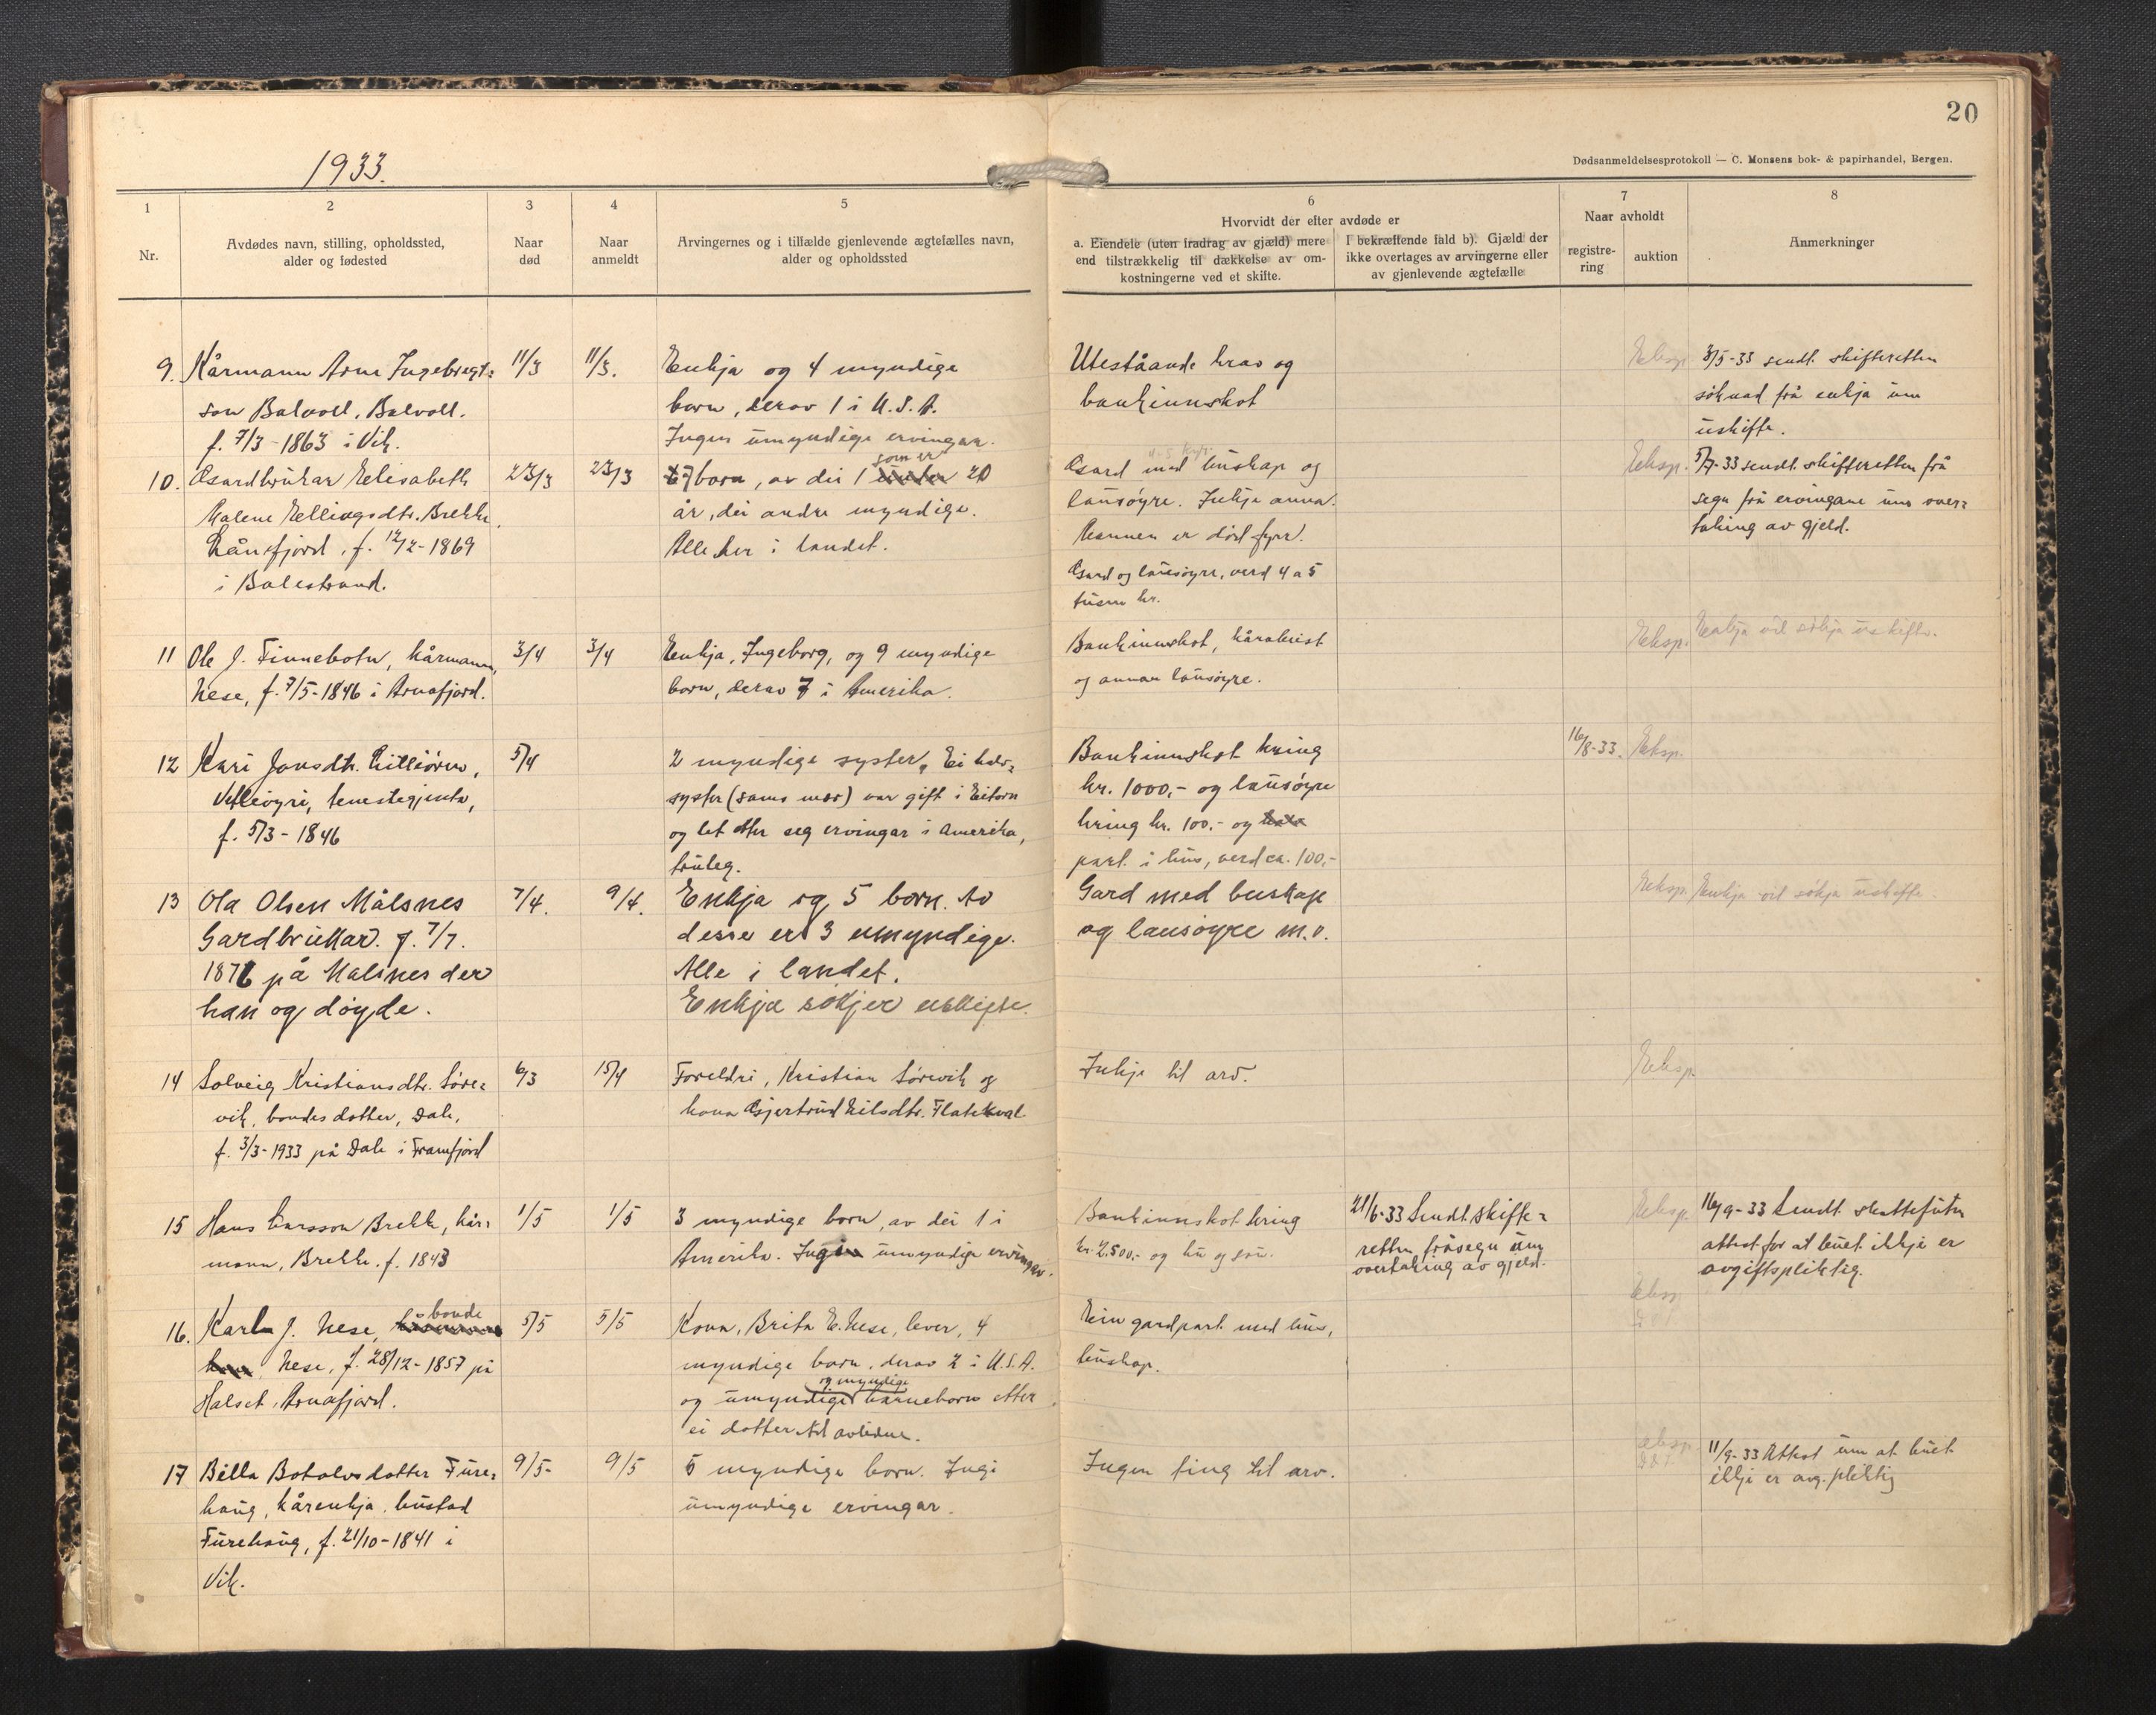 20
1933.
Dødsanmeldelsesprotokoll — C. Monsens bok- & papirhandel, Bergen.
1
2
3
4
5
6
7
8
Nr.
Avdødes navn, stilling, opholdssted,
alder og fødested
Naar
død
Naar
anmeldt
Arvingernes og i tilfælde gjenlevende ægtefælles navn,
alder og opholdssted
Hvorvidt der efter avdøde er
a. Eiendele (uten fradrag av gjæld) mere
end tilstrækkelig til dækkelse av om-
kostningerne ved et skifte.
I bekræftende fald b). Gjæld der
ikke overtages av arvingerne eller
av gjenlevende ægtefælle
Naar avholdt
registre-
ring
auktion
Anmerkninger
9. Kårmann Arne Ingebrigt=
son Balvoll, Balvoll.
f. 7/3-1863 i Vik.
11/3
11/3.
Enkja og 4 myndige
born, derav 1 i U.S.A.
Ingen umyndige ervingar.
Uteståande krav og
bankinnskot
Eksp.
3/5-33 sendt skifteretten
søknad frå enkja um
uskifte.
10. Gardbrukar Elisabeth
Malene Ellingsdtr. Brekke,
Lånefjord, f. 12/2-1869
i Balestrand.
23/3
23/3
7 born, av dei 1 under som er 20
år, dei andre myndige.
Alle her i landet.
Gard med buskap og
lausøyre. Inkje anna.
Mannen er død fyrr.
Gard og lausøyre, verd 4 a 5
tusen kr.
Eksp.
5/7-33 sendt skifteretten frå
segn frå ervingane um over=
taking av gjeld.
11 Ole J. Finnebotn, kårmann,
Nese, f. 7/5-1846 i Arnafjord.
3/4
3/4
Enkja, Ingeborg, og 9 myndige
born, derav 7 i Amerika.
Bankinnskot, kårakrist
og annan lausøyre.
Eksp.
Enkja vil søkja uskifte.
12 Kari Jonsdtr.
tenestegjenta,
f. 5/3-1846
5/4
2 myndige syster. Ei halv=
syster (sams mor) var gift i
og let etter seg ervingar i Amerika,
truleg.
Bankinnskot kring
kr. 1000,- og lausøyre
kring kr. 100.- og
part i hus, verd ca. 100,-
16/8-33.
Eksp.
13 Ola Olsen Målsnes
Gardbrukar. f. 7/7.
1876 på Målsnes der
han og døyde.
7/4.
9/4.
Enkja og 5 born. Av
desse er 3 umyndige.
Alle i landet.
Enkja søkjer uskifte.
Gard med buskap
og lausøyre m.v.
Eksp.
Enkja vil søkja uskifte.
14 Solveig Kristiansdtr. Søre=
vik, bondesdotter, Dale,
f. 3/3-1933 på Dale i Framfjord
6/3
15/4
Foreldri, Kristian Sørevik og
kona Gjertrud Nilsdtr. Flatekval
Inkje til arv.
Eksp.
15 Hans Larsson Brekke, kår=
mann, Brekke. f. 1843
1/5
1/5
3 myndige born, av dei 1 i
Amerika. Ingen umyndige ervingar.
Bankinnskot kring
kr. 2.500,- og ku og sau.
21/6-33 Sendt skifte=
retten fråsegn um
overtaking av gjeld.
Eksp.
16/9-33 Sendt skattefuten
attest for at buet ikkje er
avgiftspliktig.
16. Karl J. Nese, bonde
Nese, f. 28/12-1857 på
Halset, Arnafjord.
5/5
5/5
Kona, Brita E. Nese, lever, 4
myndige born, derav 2 i U.S.A.
og umyndige og myndige barneborn etter
ei dotter til avlidne.
Ein gardpart med hus,
buskap.
Eksp.
17 Bella Botolvsdotter Fure=
haug, kårenkja, bustad
Furehaug, f. 21/10-1841 i
Vik.
9/5-
9/5
5 myndige born. Ingi
umyndige ervingar.
Ingen ting til arv.
Eksp.
11/9-33 Attest um at buet
ikkje er avg. pliktig